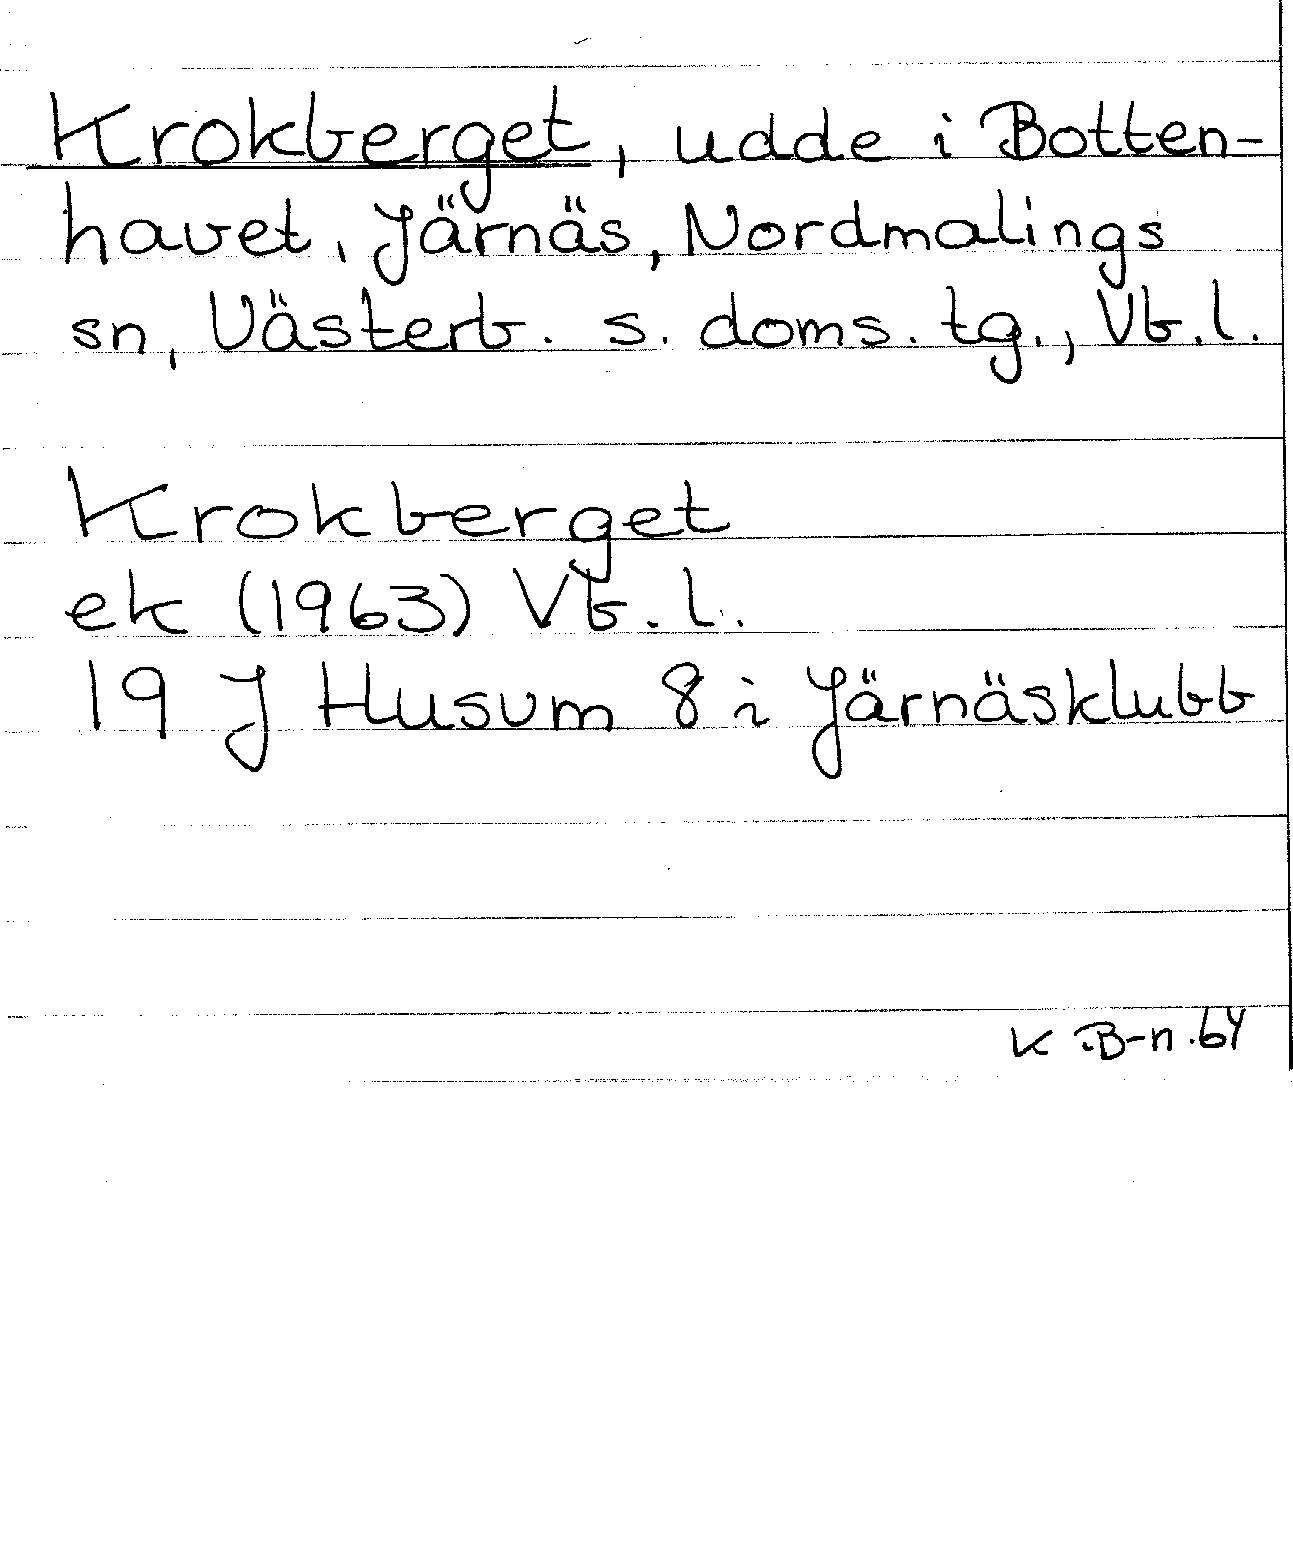 Krokberget, udde i Botten-
havet, Järnäs, Nordmalings
sn, Västerb. s. doms. tg., Vb.l.
Krokberget
ek (1963) Vb.l.
19 J Husum 8 i Järnäsklubb
K B-n.64